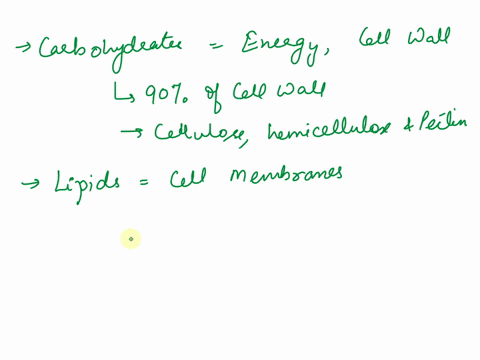 → Carbohydrates = Energy, Cell Wall
↳ 90% of Cell Wall
→ Cellulose, hemicellulose & Pectin
→ Lipids = Cell membranes